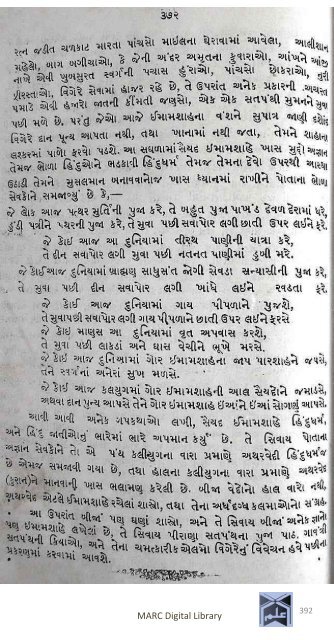 ૩૭૨
રત્ન જડીત ચળકાટ મારતા પાંચસો માઇલના ઘેરાવામાં આવેલા, આલીશાન
મહેલો, બાગ બગીચાઓ, કે જેની અંદર અમૃતના કુવારાઓ, આંખને આંજી
નાખે એવી ખુબસુરત સ્વર્ગની પચાસ હુરાઓ, પાંચસો છોકરાઓ, નુરી
ફીરસ્તાઓ, વિગેરે સેવામાં હાજર રહે છે, તે ઉપરાંત અનેક પ્રકારની અચરત
પમાડે એવી હજારો જાતની કીંમતી જણસો, એક એક સતપંથી મુમનને મુવા
પછી મળે છે. પરંતુ જેઓ આજે ઈમામશાહના વંશને સુપાત્ર જાણી દશોંદ
વિગેરે દાન પૂન્ય આપતા નથી, તથા ખાનામાં નથી જતા, તેમને શાહાના
લશ્કરમાં પાછો ફરવો પડશે. આ સઘળામાં સૈયદ ઈમામશાહે ખાસ મુદ્દો અજ્ઞાન
તેમજ ભોળા હિંદુઓને ભડકાવી હિંદુધર્મ તેમજ તેમના દેવો ઉપરથી આસ્થા
ઉઠાડી તેમને મુસલમાન બનાવવાનોજ ખાસ ધ્યાનમાં રાખીને પોતાના ભોળા
સેવકોને સમજાવ્યું છે કે,—
જે લોક આજ પત્થર મુર્તિની પુજા કરે, તે બહુત પુજા પાખંડ દેવળ દેરામાં ધરે.
હુંડી પત્રીને પથરની પુજા કરે, તે મુવા પછી સવાપોર લગી છાતી ઉપર લઈને ફરે.
જે કોઈ આજ આ દુનિયામાં તીરથ પાણીની યાત્રા કરે,
તે દીન સવાપોર લગી મુવા પછી નતનત પાણીમાં ડુબી મરે.
જે કોઈ આજ દુનિયામાં બ્રાહ્મણ સાધુસંત જોગી સેવડા સન્યાસીની પુજા કરે,
તે મુવા પછી દીન સવાપોર લગી ખાંધે લઈને રવડતા ફરે.
જે કોઈ આજ દુનિયામાં ગાય પીપળાને પુજશે,
તે મુવાપછી સવાપોર લગી ગાય પીપળાને છાતી ઉપર લઈને ફરસે
જે કોઈ માણસ આ દુનિયામાં વ્રત અપવાસ કરશે,
તે મુવા પછી લાકડાં અને ઘાસ વેચીને ભૂખે મરસે.
જે કોઈ આજ દુનિઆમાં ગોર ઈમામશાહના જાપ પારશાહને જપસે,
તેને સ્વર્ગનાં અનેરાં સુખ મળસે.
જે કોઈ આજ કલયુગમાં ગોર ઈમામશાહની આલ સૈયદોને જમાડસે,
અથવા દાન પુન્ય આપસે તેને ગોર ઈમામશાહ ઈઆંને ઈઆં સોગણું આપસે.
આવી આવી અનેક ગપકથાઓ લખી, સૈયદ ઈમામશાહે હિંદુધર્મ,
અને હિંદુ જાતીઓનું ભારેમાં ભારે અપમાન કર્યું છે. તે સિવાય પોતાના
અજ્ઞાન સેવકોને તો એ પંથ કલીયુગના વારા પ્રમાણે અથરવેદી હિંદુધર્મજ
છે એમજ સમજાવી ગયા છે, તથા હાલના કલીયુગના વારા પ્રમાણે અથરવેદ
(કુરાન)ને માનવાની ખાસ ભલામણ કરેલી છે. બીજા વેદોનો હાલ વારો નથી,
અથરવેદ એટલે ઈમામશાહે રચેલાં શાસ્ત્રો, તથા તેના અર્ધદગ્ધ કલમાઓનો સંગ્રહ.
આ ઉપરાંત બીજાં પણ ઘણાં શાસ્ત્રો, અને તે સિવાય બીજાં અનેક જ્ઞાનો
પણ ઈમામશાહે લખેલાં છે, તે સિવાય પીરાણા સતપંથના પુજા પાઠ, ગાવંત્રી
સતપંથની ક્રિયાઓ, અને તેના ચમત્કારીક એલમો વિગેરેનું વિવેચન હવે પછીના
પ્રકરણમાં કરવામાં આવશે.
MARC Digital Library
392